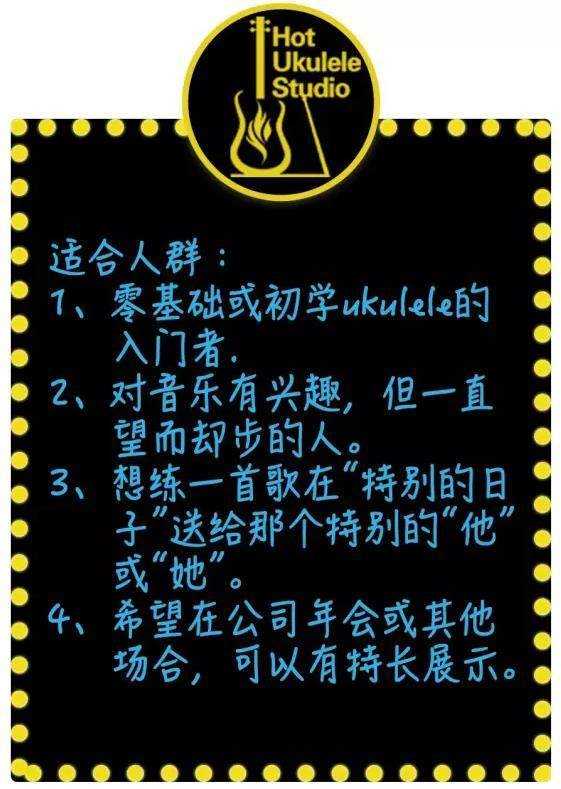 Hot
Ukulele
Studio
适合人群：
1、零基础或初学ukulele的
入门者.
2、对音乐有兴趣，但一直
望而却步的人。
3、想练一首歌在“特别的日
子”送给那个特别的“他”
或“她”。
4、希望在公司年会或其他
场合，可以有特长展示。